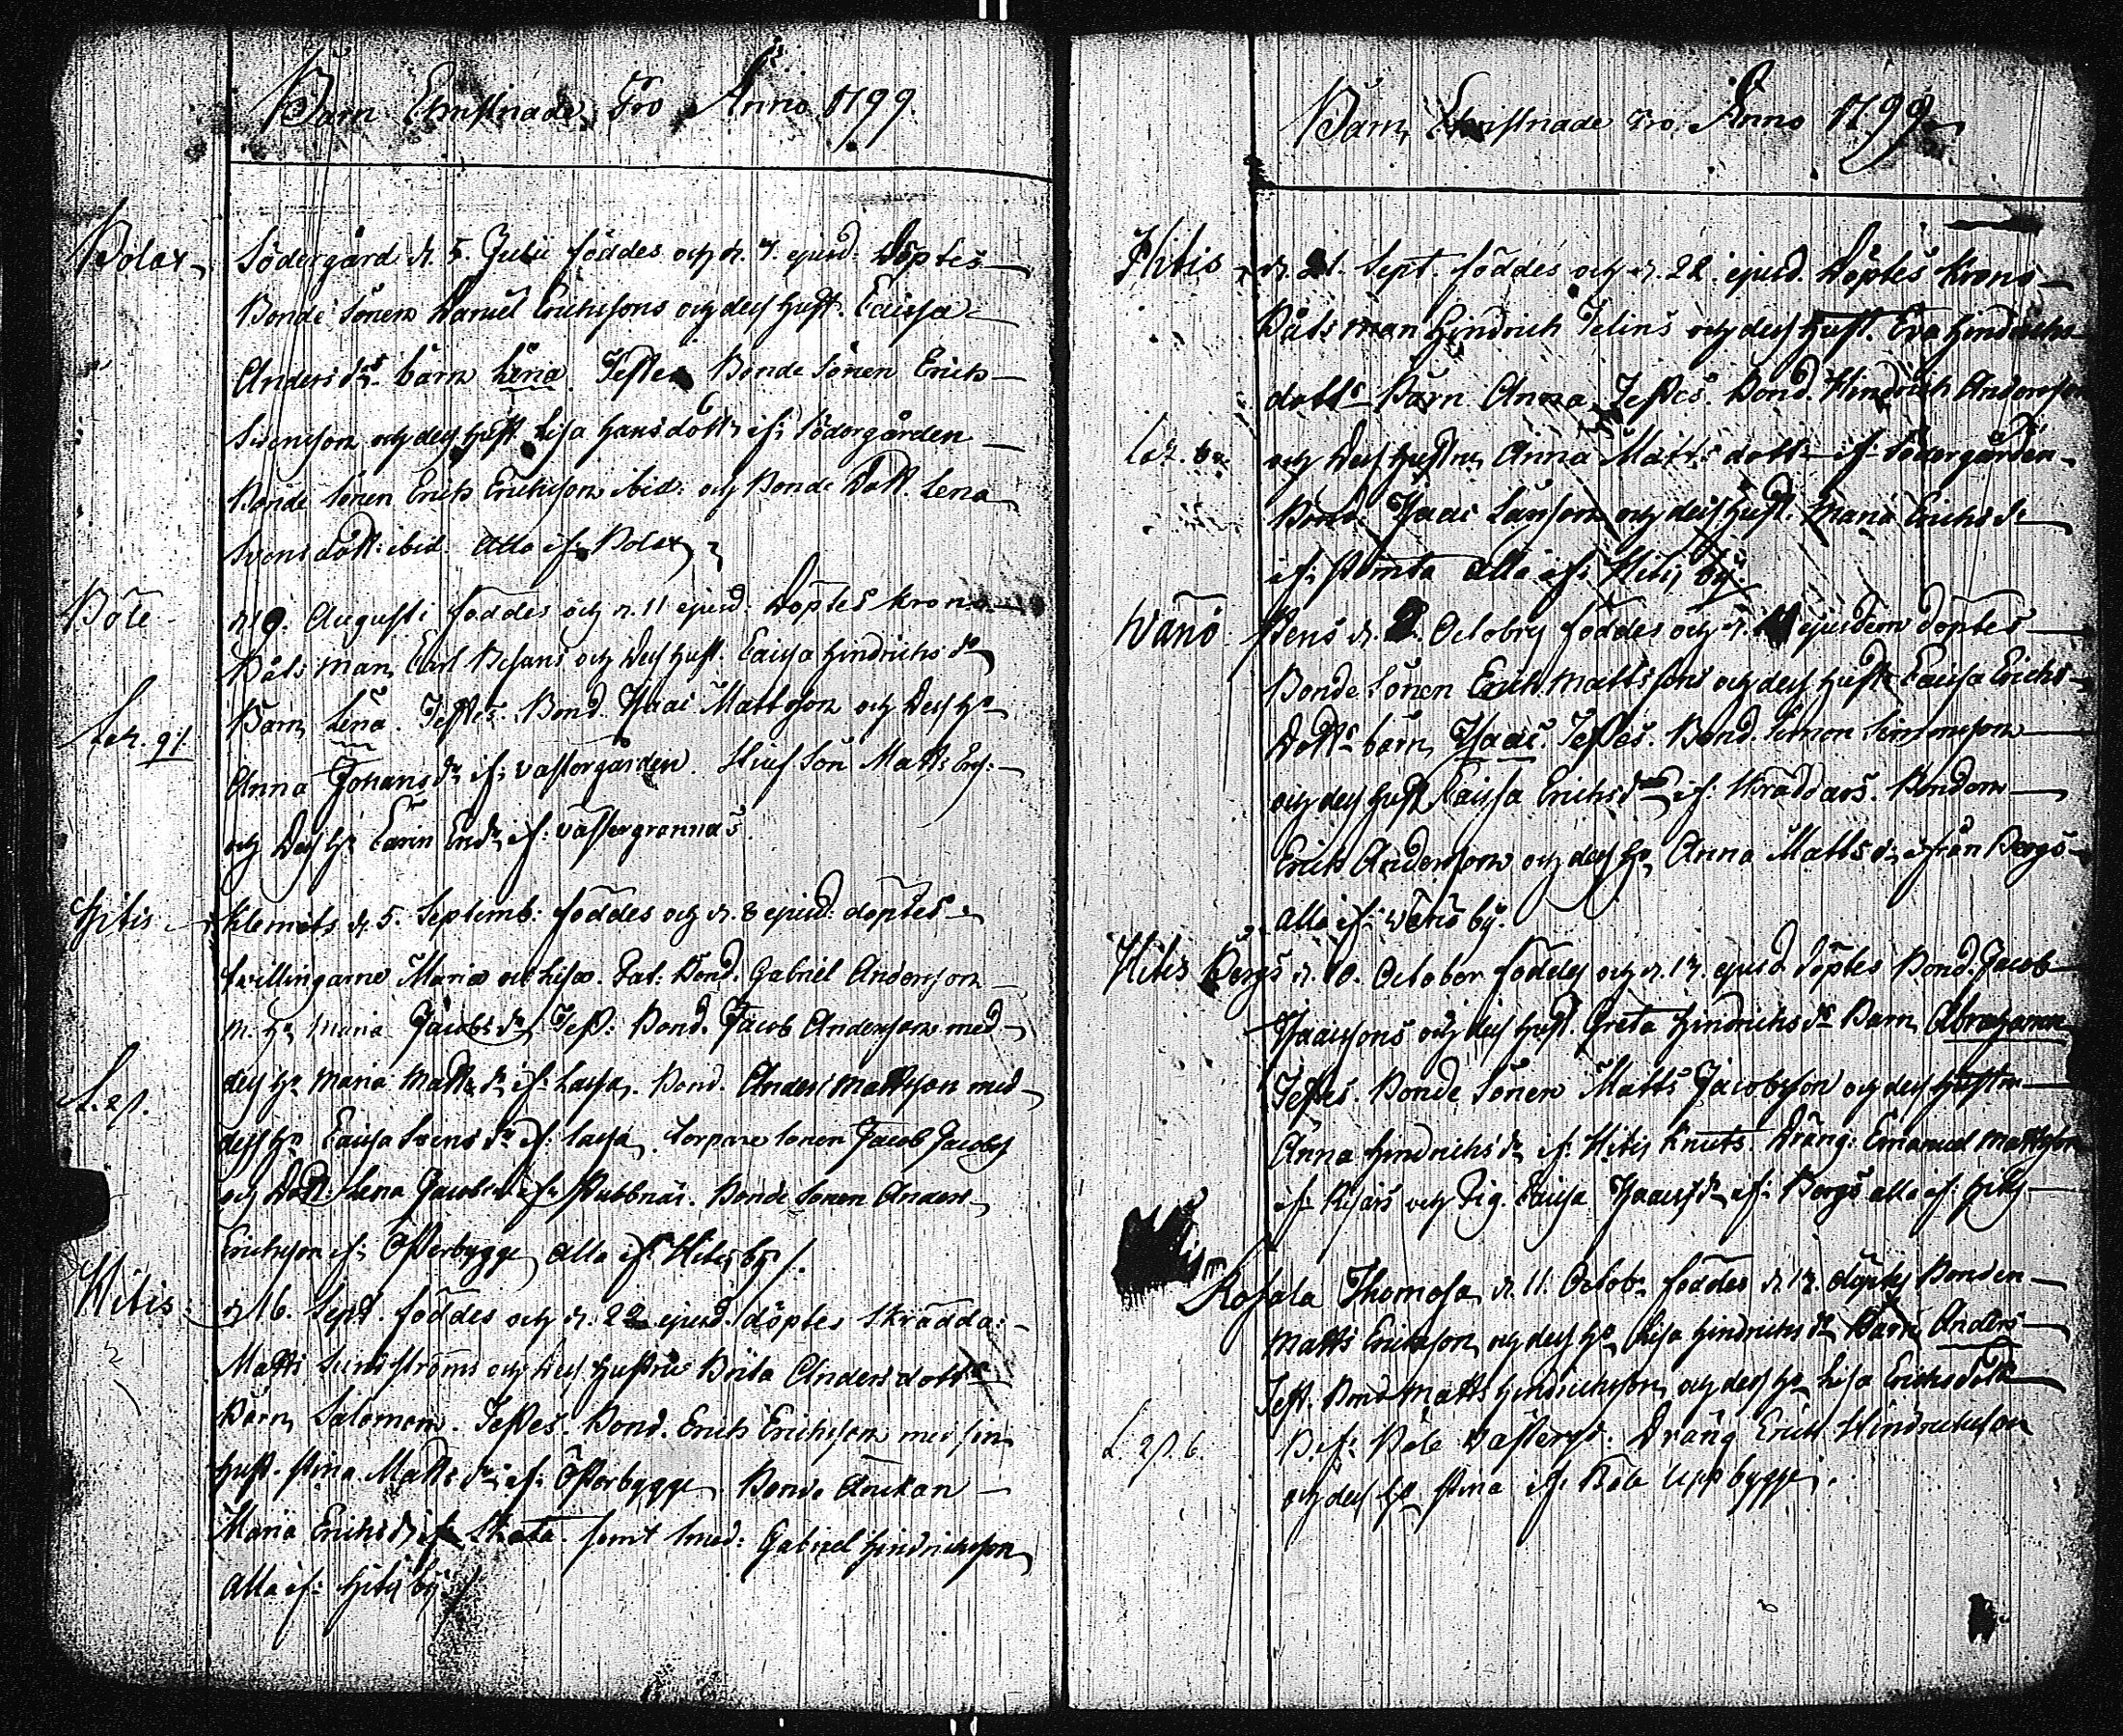 Barn Christnade Pro Anno 1799.
Bolax Södergård d. 5. Julii föddes och d. 7. ejusd. döptes
Bonde Sonen Daniel Erichssons och dess hust. Caisa
Anders dr barn Lena. Testes Bonde Sonen Erich
Svensson och dess hust. Lisa Hansdottr if: Södergården
Bonde Sonen Erich Erichsson ibid: och Bonde Dott. Lena
Svens dott: ibid. Alla if: Bolax
Böle d. 9. Augusti föddes och d. 11 ejusd. döptes Krono
Båtsman Carl Besans och dess hust. Caisa Hindrichs dr
Barn Lena. Testes. Bond. Isaac Mattsson och dess h.
Anna Johans dr if: västorgården. Matts
och dess h. Carin if: västergrannas.
Hitis Klemets d. 5. Septemb: föddes och d. 8 ejusd: döptes
tvillingarne Maria och Lisa. Pat: Bond. Gabriel Andersson
M. h. Maria Jacobs dr Test: Bond. Jacob Andersson med
dess h. Maria Matts dr if: Lassa. Bond. Anders Mattsson med
dess h. Caisa Svens dr if: Lassa. Torpare Sonen Jacob Jacobs
och Dott. Lena Jacobs if: Stubbnäs. Bonde Sonen Anders
Erichsson if: Österbygge alla if: Hitis by /.
Hitis: d. 16. Sept. föddes och d. 22 ejusd. döptes Skrädda:
Matts Sundströms och dess hustru Brita Anders dottr
Barn Salomon. Testes. Bond. Erich Erichsson med sin
hust. Stina Matts dr if: Österbygge Bonde Änckan
Maria Erichs dr if: Skata samt Smed: Gabriel Hindrichsson
alla if: Hitis by /
Barn Christnade Pro Anno 1799
Hitis d. 21. Sept. föddes och d. 22. ejusd. döptes Krono
Båtsman Hindrich Telins och dess hust. Eva Hindrichs
dottr Barn Anna Testes. Bond. Hindrich Andersson
och dess hustru Anna Matts dottr if: Södergården
Bond. Isaac och dess hust. Maria Erichs dr
if: alla if: Hitis by.
Wänö Bens d. 2. Octobris föddes och d. ejusdem döptes
Bonde Sonen Erich Mattssons och dess hust. Caisa Erichs
dottr barn Isaac. Testes. Bond. Simon Simonsson
och dess hust Caisa Erichs dr if: Skräddars. Bonden
Erich Andersson och dess h. Anna Matts dr ifrån Bergs
alla if: Wänö by.
Hitis Bergs d. 10. October föddes och d. 13. ejusd döptes Bond. Jacob
Isaacssons och dess hust. Greta Hindrichs dr Barn Abraham
Testes. Bonde Sonen Matts Jacobsson och dess hustru
Anna Hindrichs dr if: Hitis Knuts. Dräng: Emanuel Mattsson
if: och Pig. Caisa Isaacs dr if: Bergs alla if: Hitis
Rosala Thomasa d. 11. Octob. föddes d. 13. döptes Bonden
Matts Erichsson och dess h. Lisa Hindrichs dr Barn Anders
Test. Bond Matts Hindrichsson och dess h. Lisa Erichsdott
if: Böle västergd: Dräng Erich Hindrichsson
och dess h. Stina if: Böle Uppbygge.